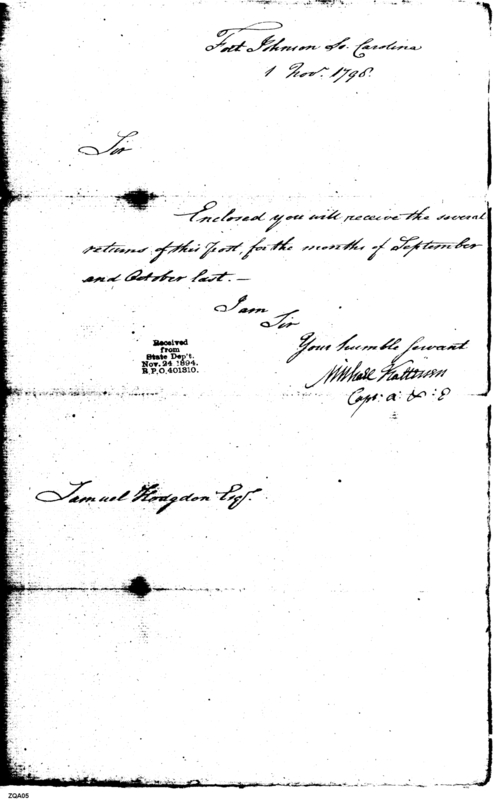 Fort Jhnson So. Carolina
1 Nov. 1798.
Sir
Enclosed you will receive the several
returns of this post for the months of September
and October last. —
I am
Sir
Your humble Servant
Received
from
State Dep't.
Nov. 24 1894.
R.P.O. 401310.
Capt: a: & : E
Samuel Hodgdon Esqr.
ZQA05